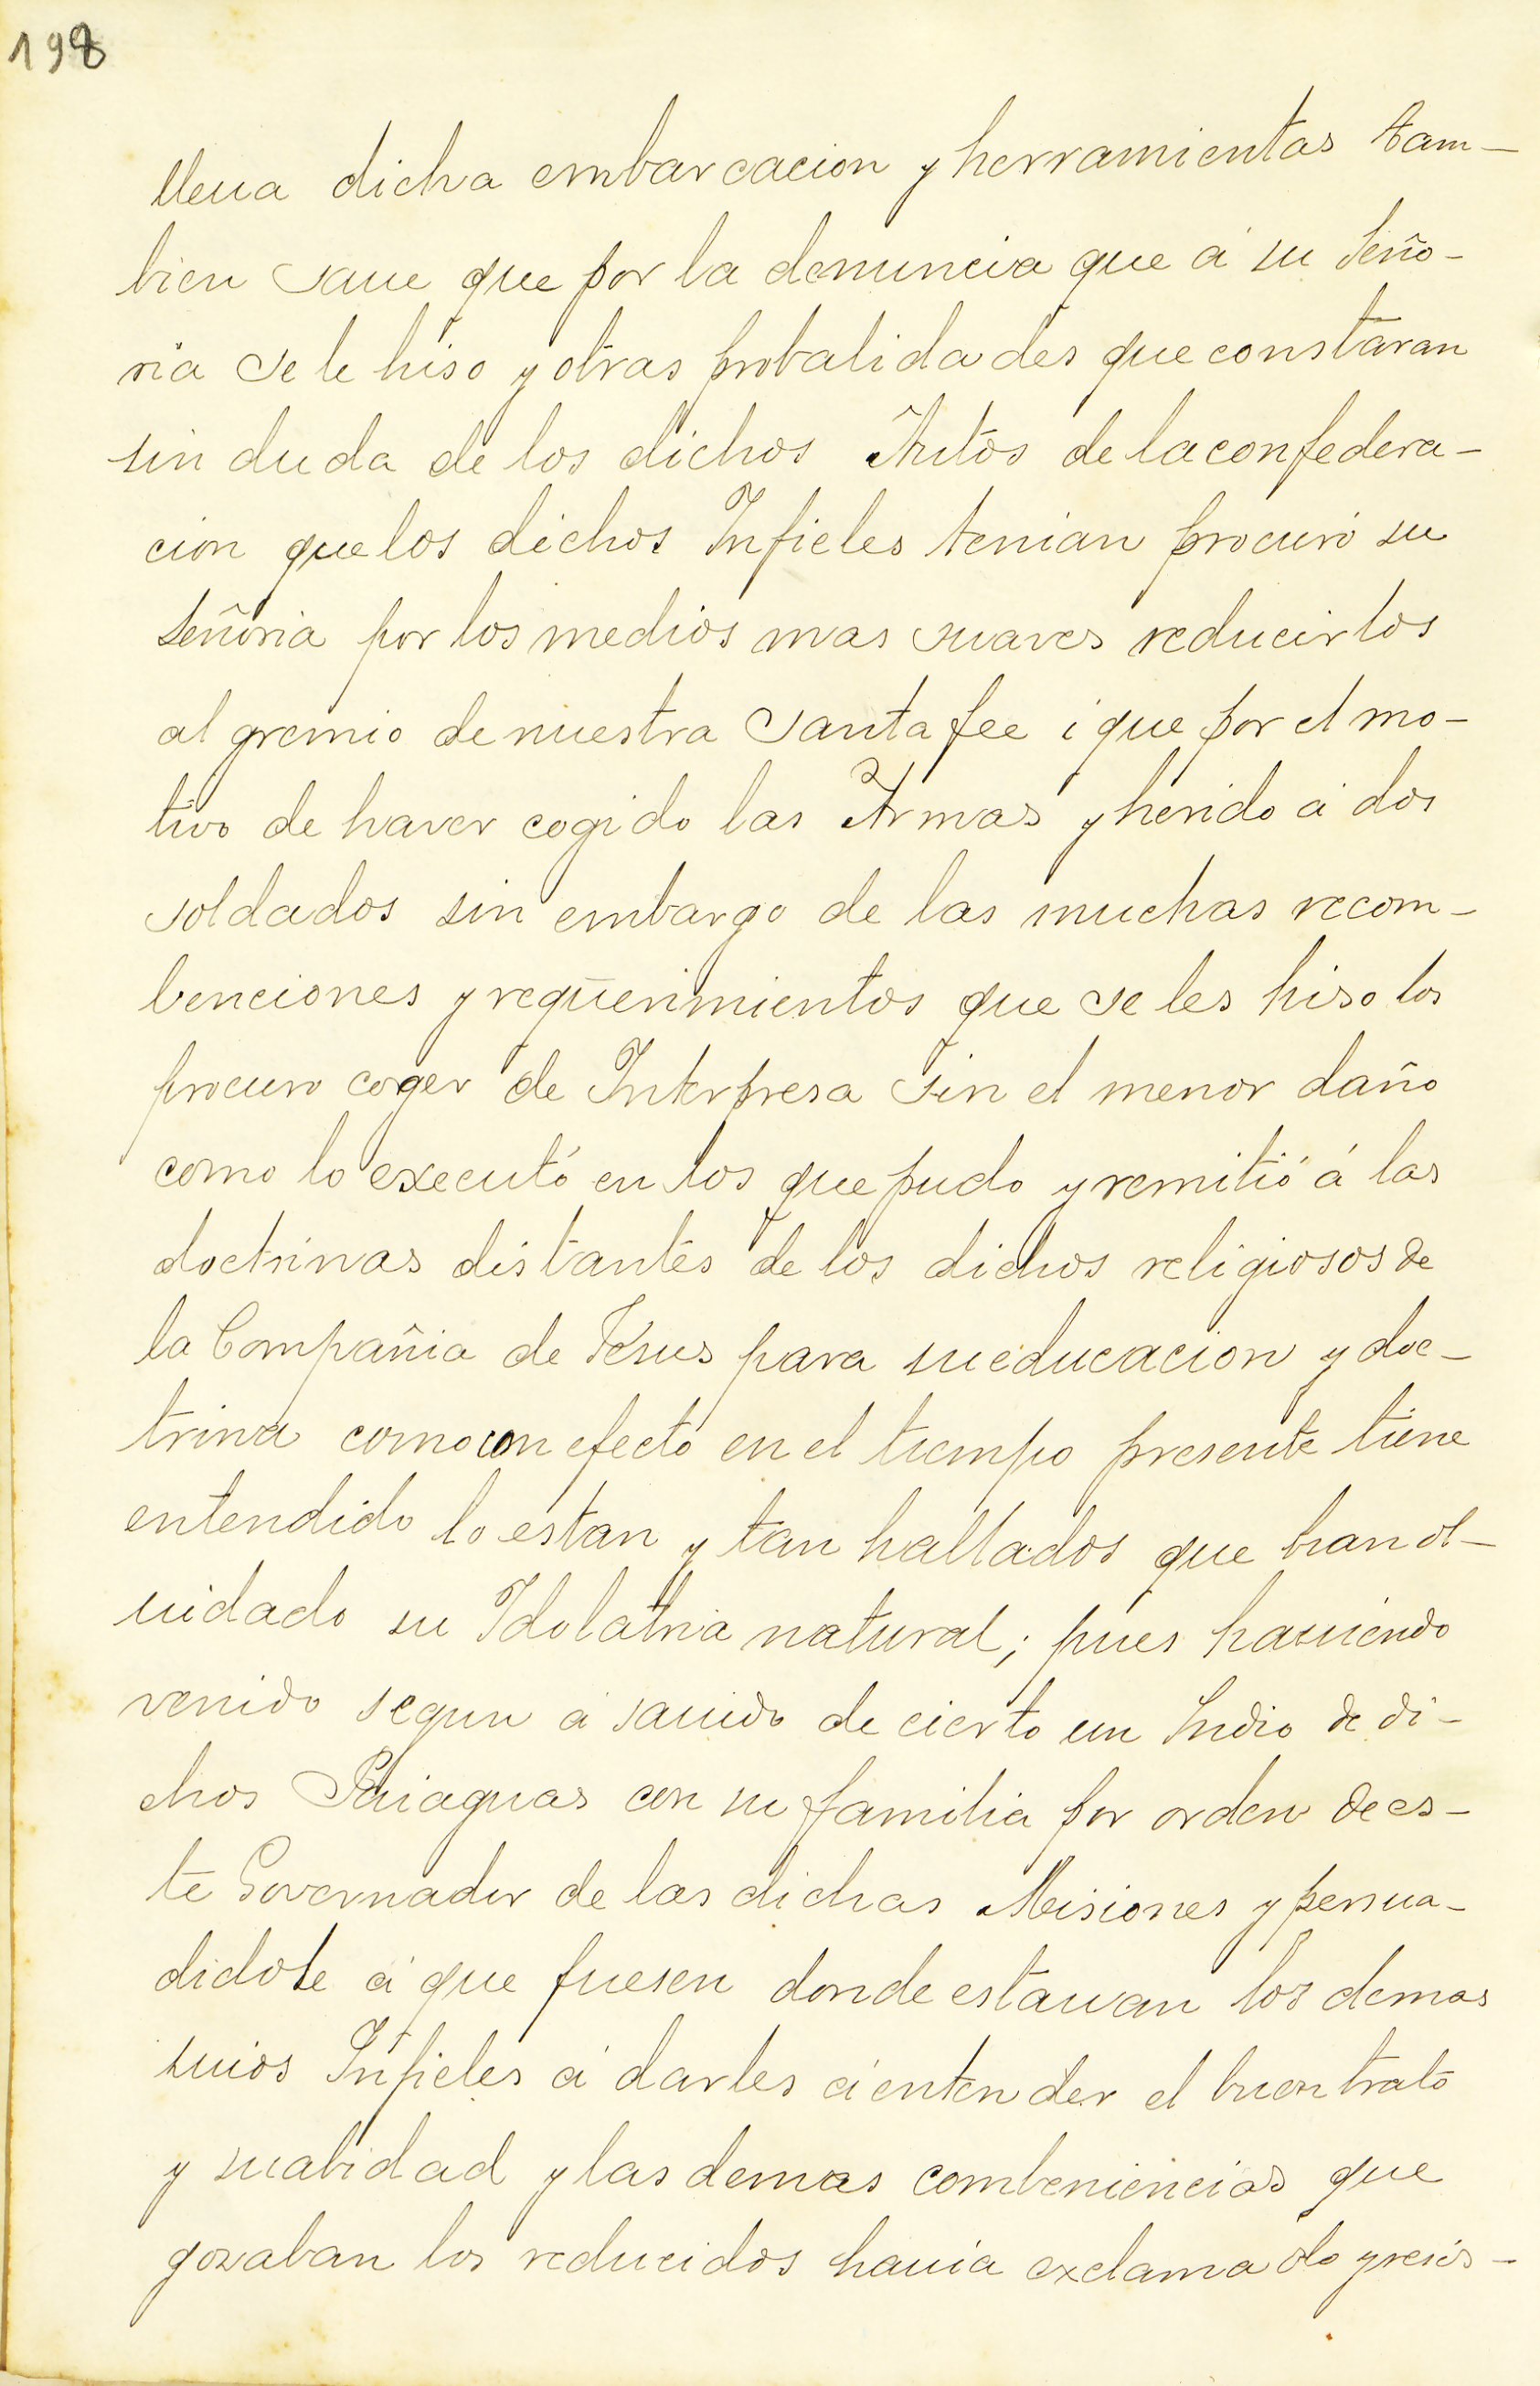 198
lleua dicha embarcacion y herramientas tam-
bien saue que por la denuncia que á su Seño-
ria se le hiso y otras probalidades que constaran
sin duda de los dichos Autos de la confedera-
cion que los dichos Infieles tenian procuró su
Señoria por los medios mas suaves reducirlos
al gremio de nuestra Santa fee i que por el mo-
tivo de haver cogido las Armas y herido á dos
soldados sin embargo de las muchas recom-
benciones y requerimientos que se les hiso los
procuro coger de Interpresa sin el menor daño
como lo executó en los que pudo y remitió á las
doctrinas distantes de los dichos religiosos de
la Compañia de Jesus para su educacion y doc-
trina como con efecto en el tiempo presente tiene
entendido lo estan y tan hallados que han ol-
uidado su Idolatria natural; pues hauiendo
venido segun á sauido de cierto un Indio de di-
chos Paiaguas con su familia por orden de es-
te Governador de las dichas Misiones y persua-
didole á que fuesen donde estauan los demas
suios Infieles á darles á entender el buen trato
y suabidad y las demas combeniencias que
gozaban los reducidos hauia exclamado y resis-